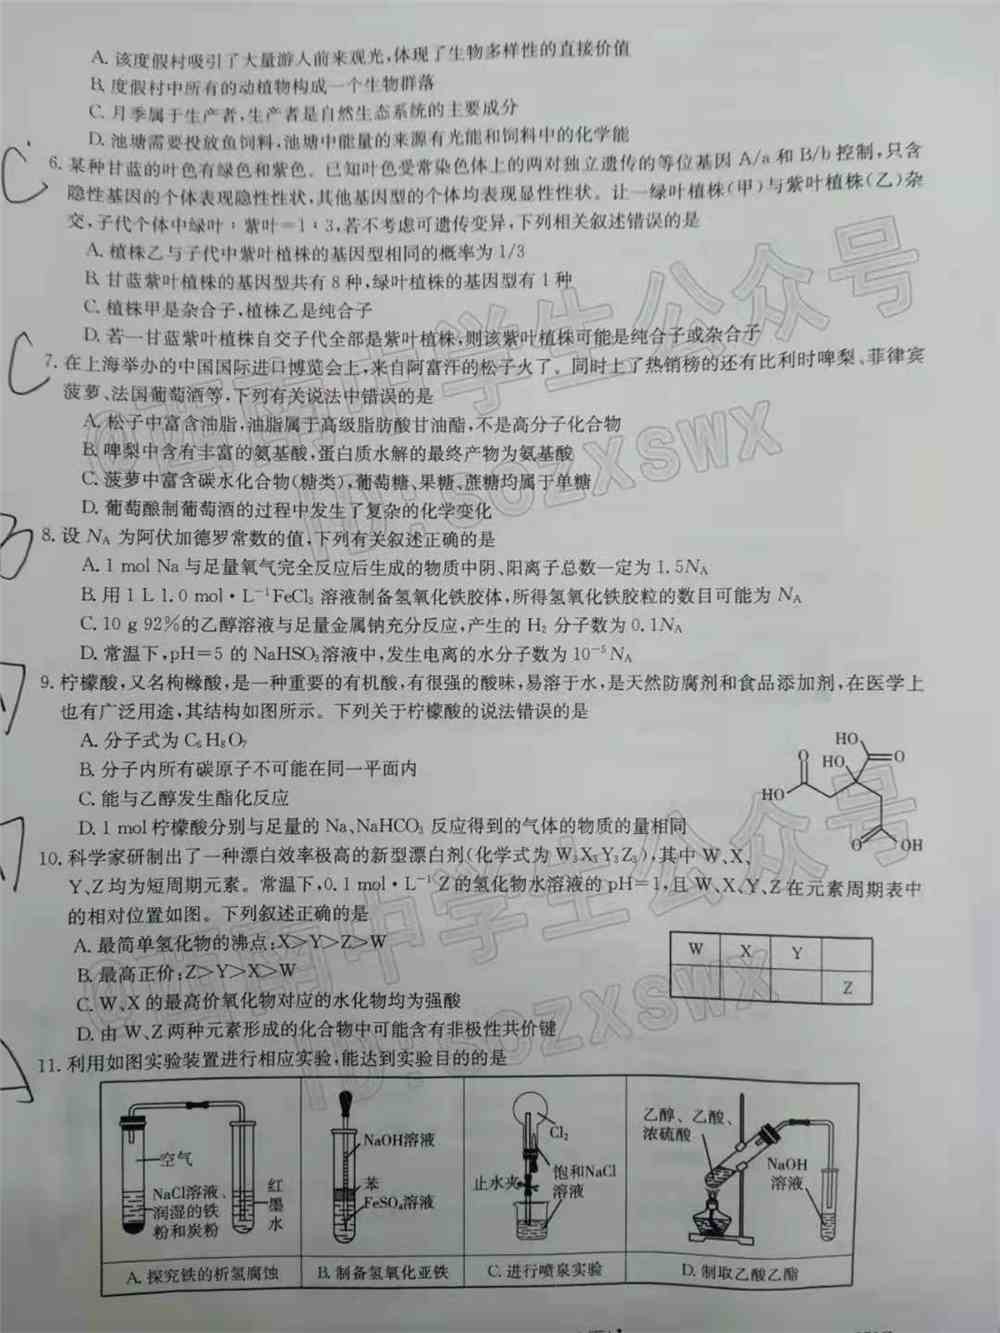 A. 该度假村吸引了大量游人前来观光,体现了生物多样性的直接价值
B. 度假村中所有的动植物构成一个生物群落
C. 月季属于生产者,生产者是自然生态系统的主要成分
D. 池塘需要投放鱼饲料,池塘中能量的来源有光能和饲料中的化学能
C
6. 某种甘蓝的叶色有绿色和紫色。已知叶色受常染色体上的两对独立遗传的等位基因 A/a 和 B/b 控制,只含
隐性基因的个体表现隐性性状,其他基因型的个体均表现显性性状。让一绿叶植株(甲)与紫叶植株(乙)杂
交,子代个体中绿叶:紫叶=1:3,若不考虑可遗传变异,下列相关叙述错误的是
A. 植株乙与子代中紫叶植株的基因型相同的概率为 1/3
B. 甘蓝紫叶植株的基因型共有 8 种,绿叶植株的基因型有 1 种
C. 植株甲是杂合子,植株乙是纯合子
D. 若一甘蓝紫叶植株自交子代全部是紫叶植株,则该紫叶植株可能是纯合子或杂合子
C
7. 在上海举办的中国国际进口博览会上,来自阿富汗的松子火了。同时上了热销榜的还有比利时啤梨、菲律宾
菠萝、法国葡萄酒等,下列有关说法中错误的是
A. 松子中富含油脂,油脂属于高级脂肪酸甘油酯,不是高分子化合物
B. 啤梨中含有丰富的氨基酸,蛋白质水解的最终产物为氨基酸
C. 菠萝中富含碳水化合物(糖类),葡萄糖、果糖、蔗糖均属于单糖
D. 葡萄酿制葡萄酒的过程中发生了复杂的化学变化
8. 设 NA 为阿伏加德罗常数的值,下列有关叙述正确的是
A. 1 mol Na 与足量氧气完全反应后生成的物质中阴、阳离子总数一定为 1.5NA
B. 用 1 L 1.0 mol·L⁻¹FeCl₃ 溶液制备氢氧化铁胶体,所得氢氧化铁胶粒的数目可能为 NA
C. 10 g 92%的乙醇溶液与足量金属钠充分反应,产生的 H₂ 分子数为 0.1NA
D. 常温下,pH=5 的 NaHSO₃溶液中,发生电离的水分子数为 10⁻⁵NA
9. 柠檬酸,又名枸橼酸,是一种重要的有机酸,有很强的酸味,易溶于水,是天然防腐剂和食品添加剂,在医学上
也有广泛用途,其结构如图所示。下列关于柠檬酸的说法错误的是
A. 分子式为 C₆H₈O₇
B. 分子内所有碳原子不可能在同一平面内
C. 能与乙醇发生酯化反应
D. 1 mol 柠檬酸分别与足量的 Na、NaHCO₃ 反应得到的气体的物质的量相同
HO
O HO O
HO
O OH
10. 科学家研制出了一种漂白效率极高的新型漂白剂(化学式为 W₃X₃Y₃Z₃),其中 W、X、
Y、Z 均为短周期元素。常温下,0.1 mol·L⁻¹ Z 的氢化物水溶液的 pH=1,且 W、X、Y、Z 在元素周期表中
的相对位置如图。下列叙述正确的是
A. 最简单氢化物的沸点:X>Y>Z>W
B. 最高正价:Z>Y>X>W
C. W、X 的最高价氧化物对应的水化物均为强酸
D. 由 W、Z 两种元素形成的化合物中可能含有非极性共价键
W X Y
Z
11. 利用如图实验装置进行相应实验,能达到实验目的的是
空气
NaCl溶液、
润湿的铁
粉和炭粉
红
墨
水
NaOH溶液
苯
FeSO₄溶液
Cl₂
止水夹
饱和NaCl
溶液
乙醇、乙酸、
浓硫酸
NaOH
溶液
A. 探究铁的析氢腐蚀
B. 制备氢氧化亚铁
C. 进行喷泉实验
D. 制取乙酸乙酯
@西南中学生公众号
ID:SCZXSWX
西南中学生公众号
ID:SCZXSWX